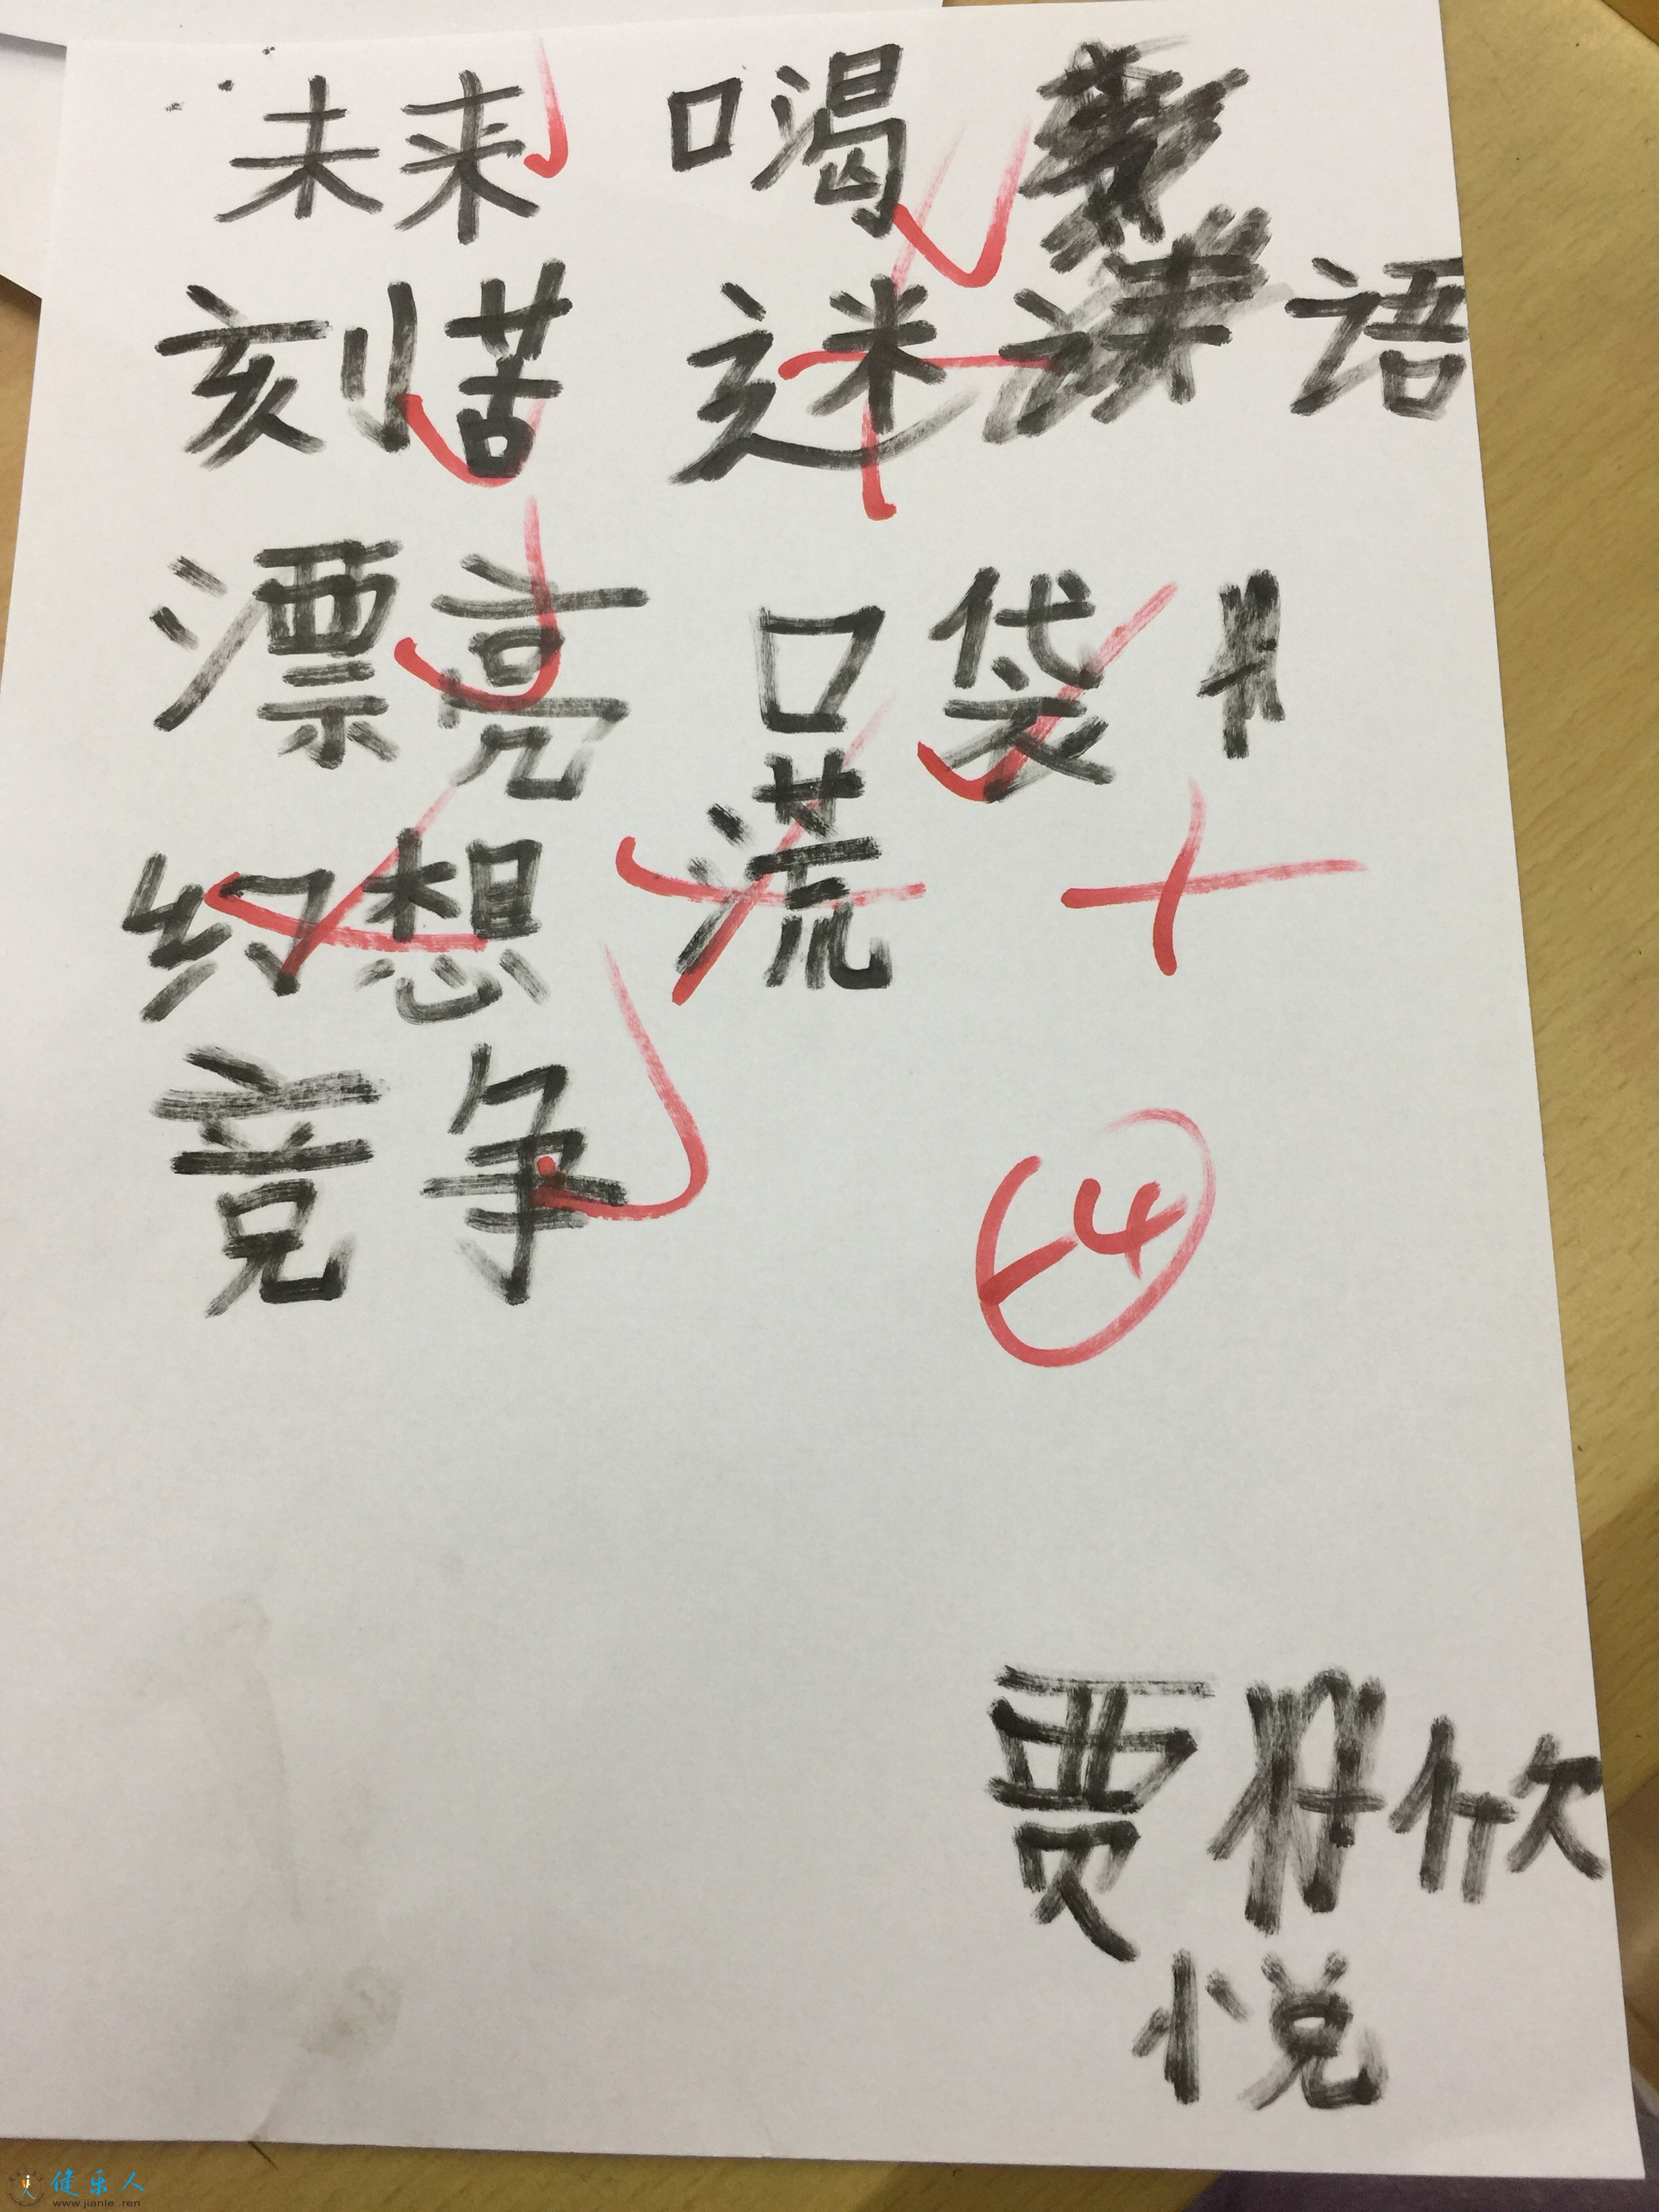 未来 口渴
刻苦 迷 语
漂亮 口袋
幻想 谎
竞争
-4
贾 欣
悦
健乐人
www.jianle.ren